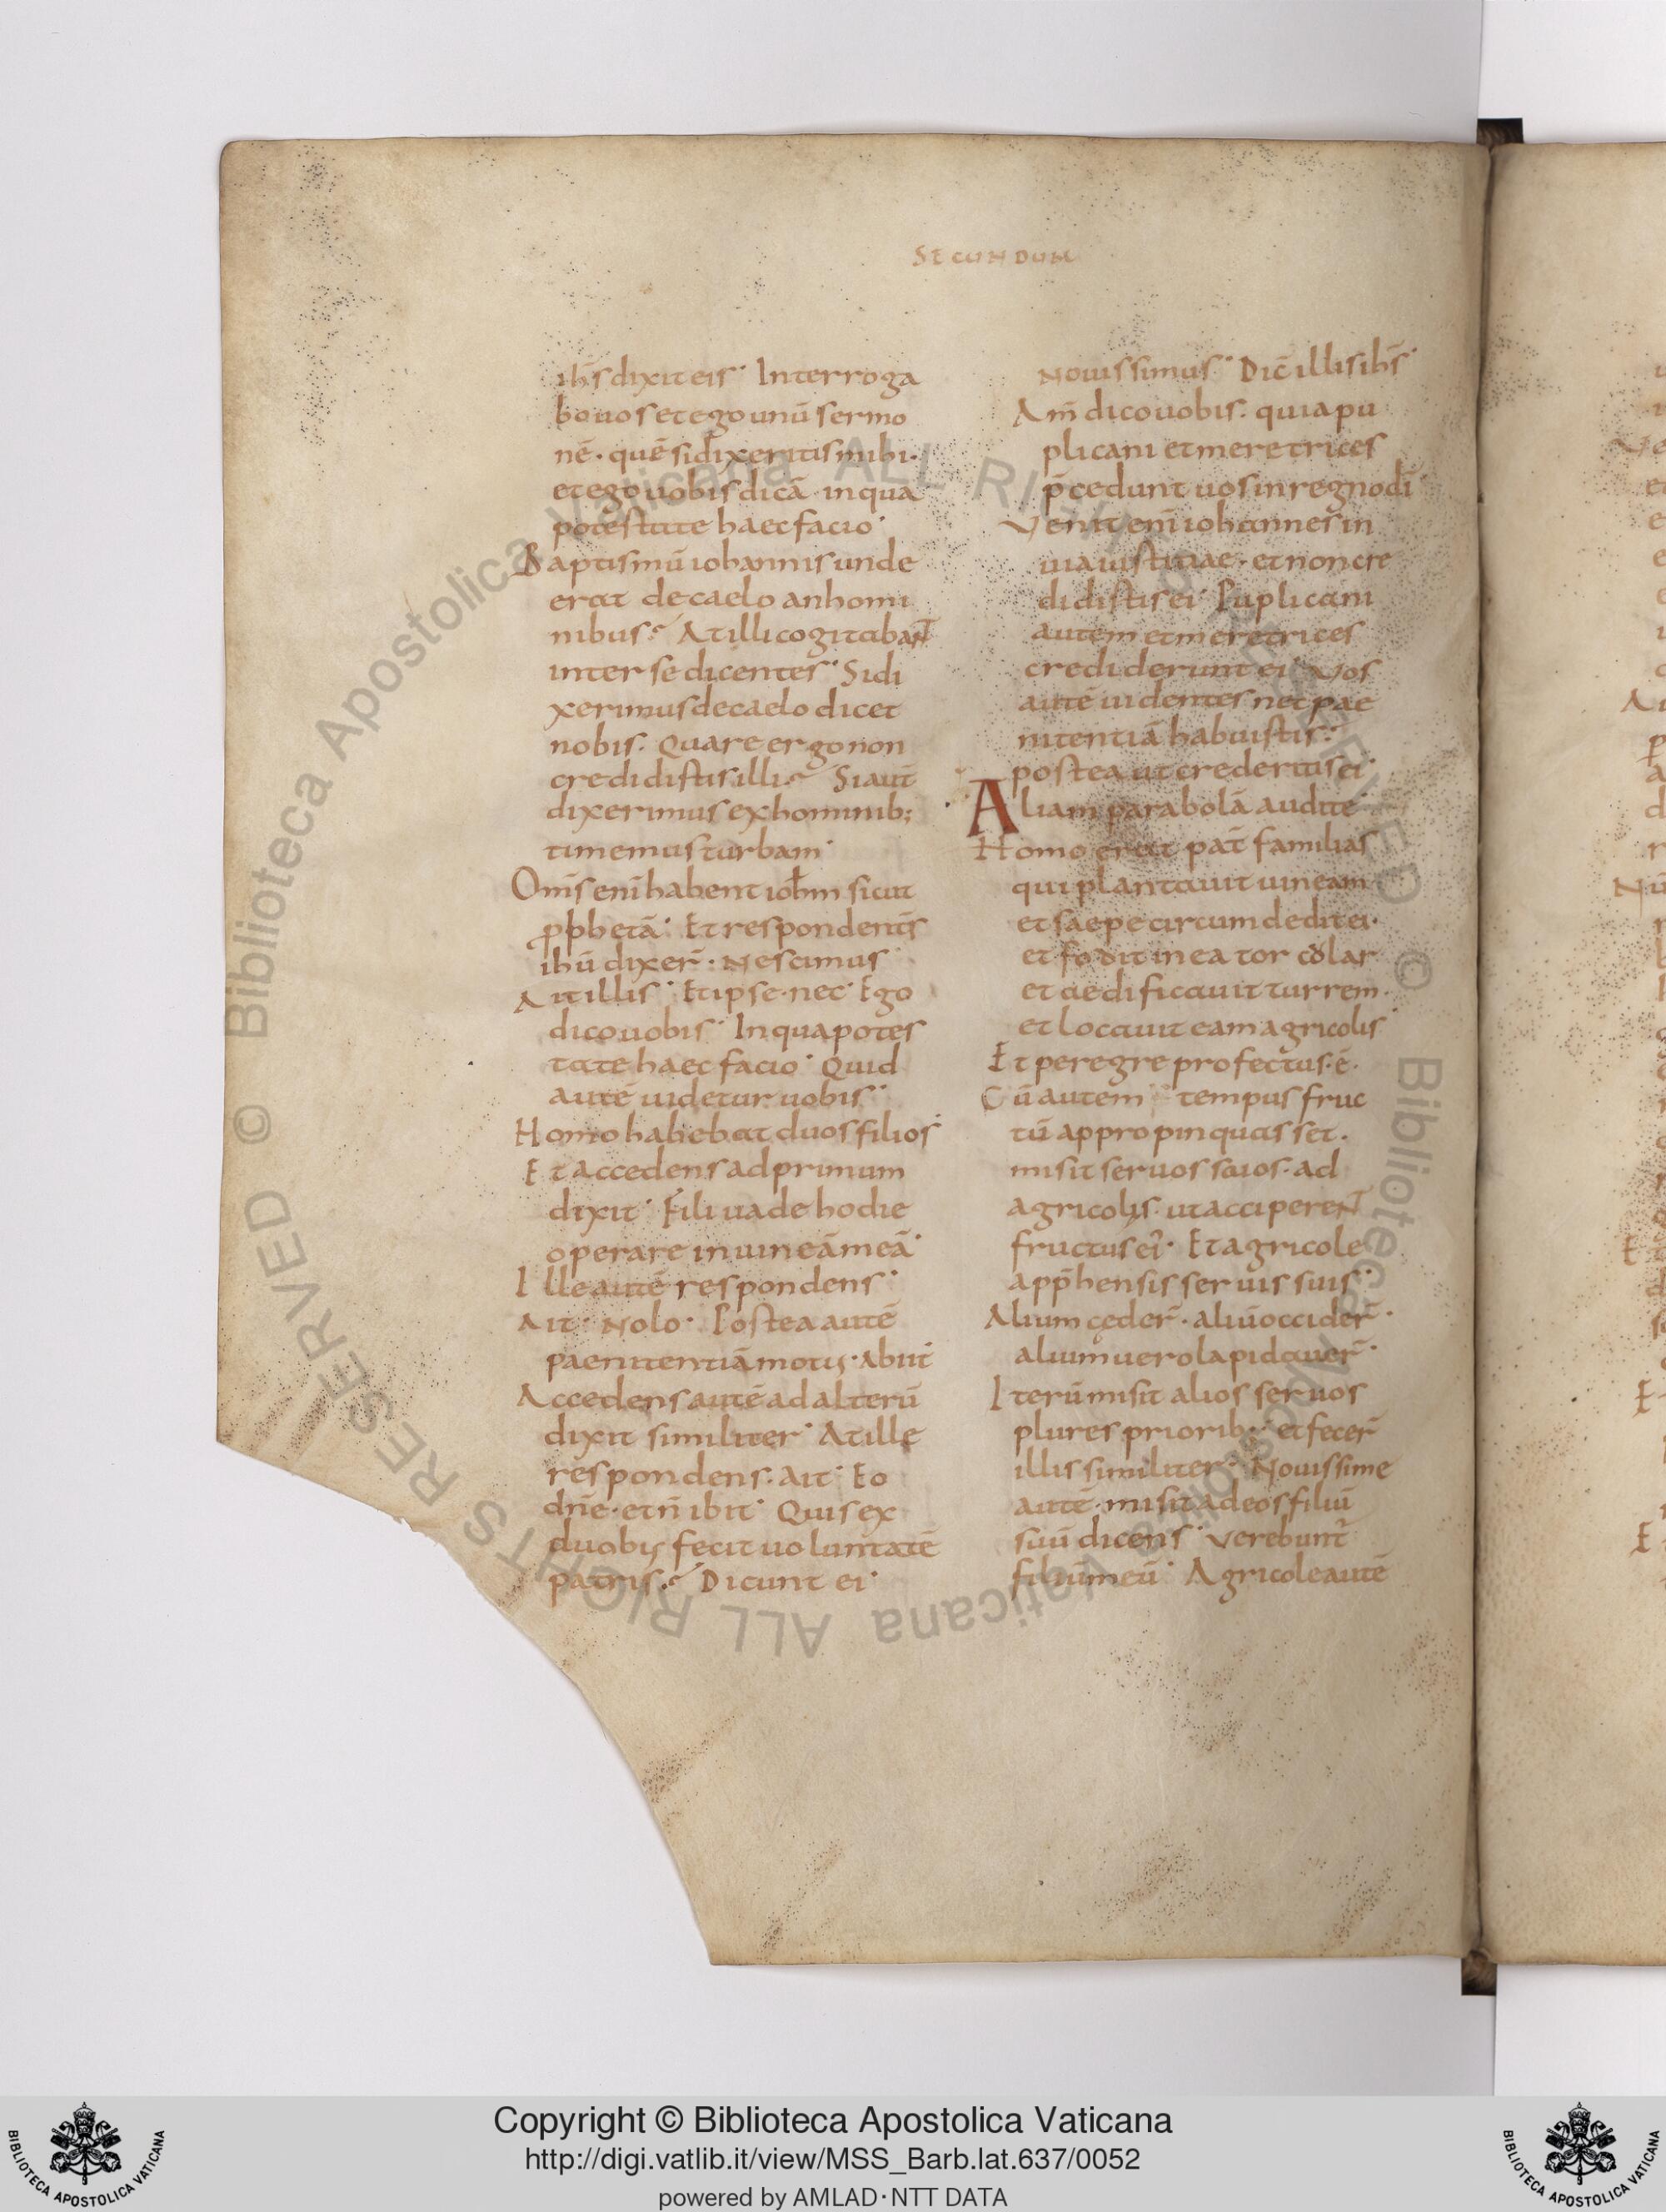 SECUNDUM
ihs̄ dixit eis· Interroga
bo uos et ego unū sermo
nē· quē si dixeritis mihi·
et ego uobis dicā· in qua
potestate haec facio·
Baptismū iohannis unde
erat de caelo an homi
nibus? At illi cogitabant
inter se dicentes· Si di
xerimus de caelo dicet
nobis· Quare ergo non
credidistis illi? Si aut̄
dixerimus ex hominib;
timemus turbam·
Om̄s enī habent ioh̄m sicut
prophetā· Et respondent̄s
ihū dixer̄· Nescimus
Ait illis· Et ipse· nec· Ego
dico uobis· In qua potes
tate haec facio· Quid
autē uidetur uobis·
Homo habebat duos filios·
Et accedens ad primum
dixit· Fili uade hodie
operare in uineā meā·
Ille autē respondens·
Ait· Nolo· Postea autē
paenitentiā motus· abiit·
Accedens autē ad alterū
dixit similiter· At ille
respondens· ait· Eo
dn̄e· et n̄ ibit· Quis ex
duobus fecit uoluntatē
patris? Dicunt ei·
Nouissimus· Dic̄ illis ihs̄·
Am̄ dico uobis· quia pu
plicani et meretrices
p̄cedunt uos in regno dī
Venit enī iohannes in
uia iustitiae· et non cre
didistis ei· Puplicani
autem et meretrices
crediderunt ei· Vos
autē uidentes nec pae
nitentiā habuistis·
postea ut crederitis ei·
Aliam parabolā audite·
Homo erat pat̄ familias
qui plantauit uineam
et saepe circumdedit ei·
et fodit in ea torcolar
et aedificauit turrem·
et locauit eam agricolis·
Et peregre profectus· ē·
Cū autem tempus fruc
tū appropinquasset·
misit seruos suos· ad
agricolis· ut acciperent
fructus ei· Et agricole
app̄hensis seruis suis·
Alium cęder̄· aliū occider̄·
alium uero lapidauer̄·
Iterū misit alios seruos
plures priorib;· et fecer̄
illis similiter· Nouissime
autē· misit ad eos filiū
suū dicens· Verebunt̄
filiū meū· Agricole autē
Copyright © Biblioteca Apostolica Vaticana
http://digi.vatlib.it/view/MSS_Barb.lat.637/0052
powered by AMLAD·NTT DATA
BIBLIOTECA APOSTOLICA VATICANA
BIBLIOTECA APOSTOLICA VATICANA
© Biblioteca Apostolica Vaticana ALL RIGHTS RESERVED © Biblioteca Apostolica Vaticana ALL RIGHTS RESERVED